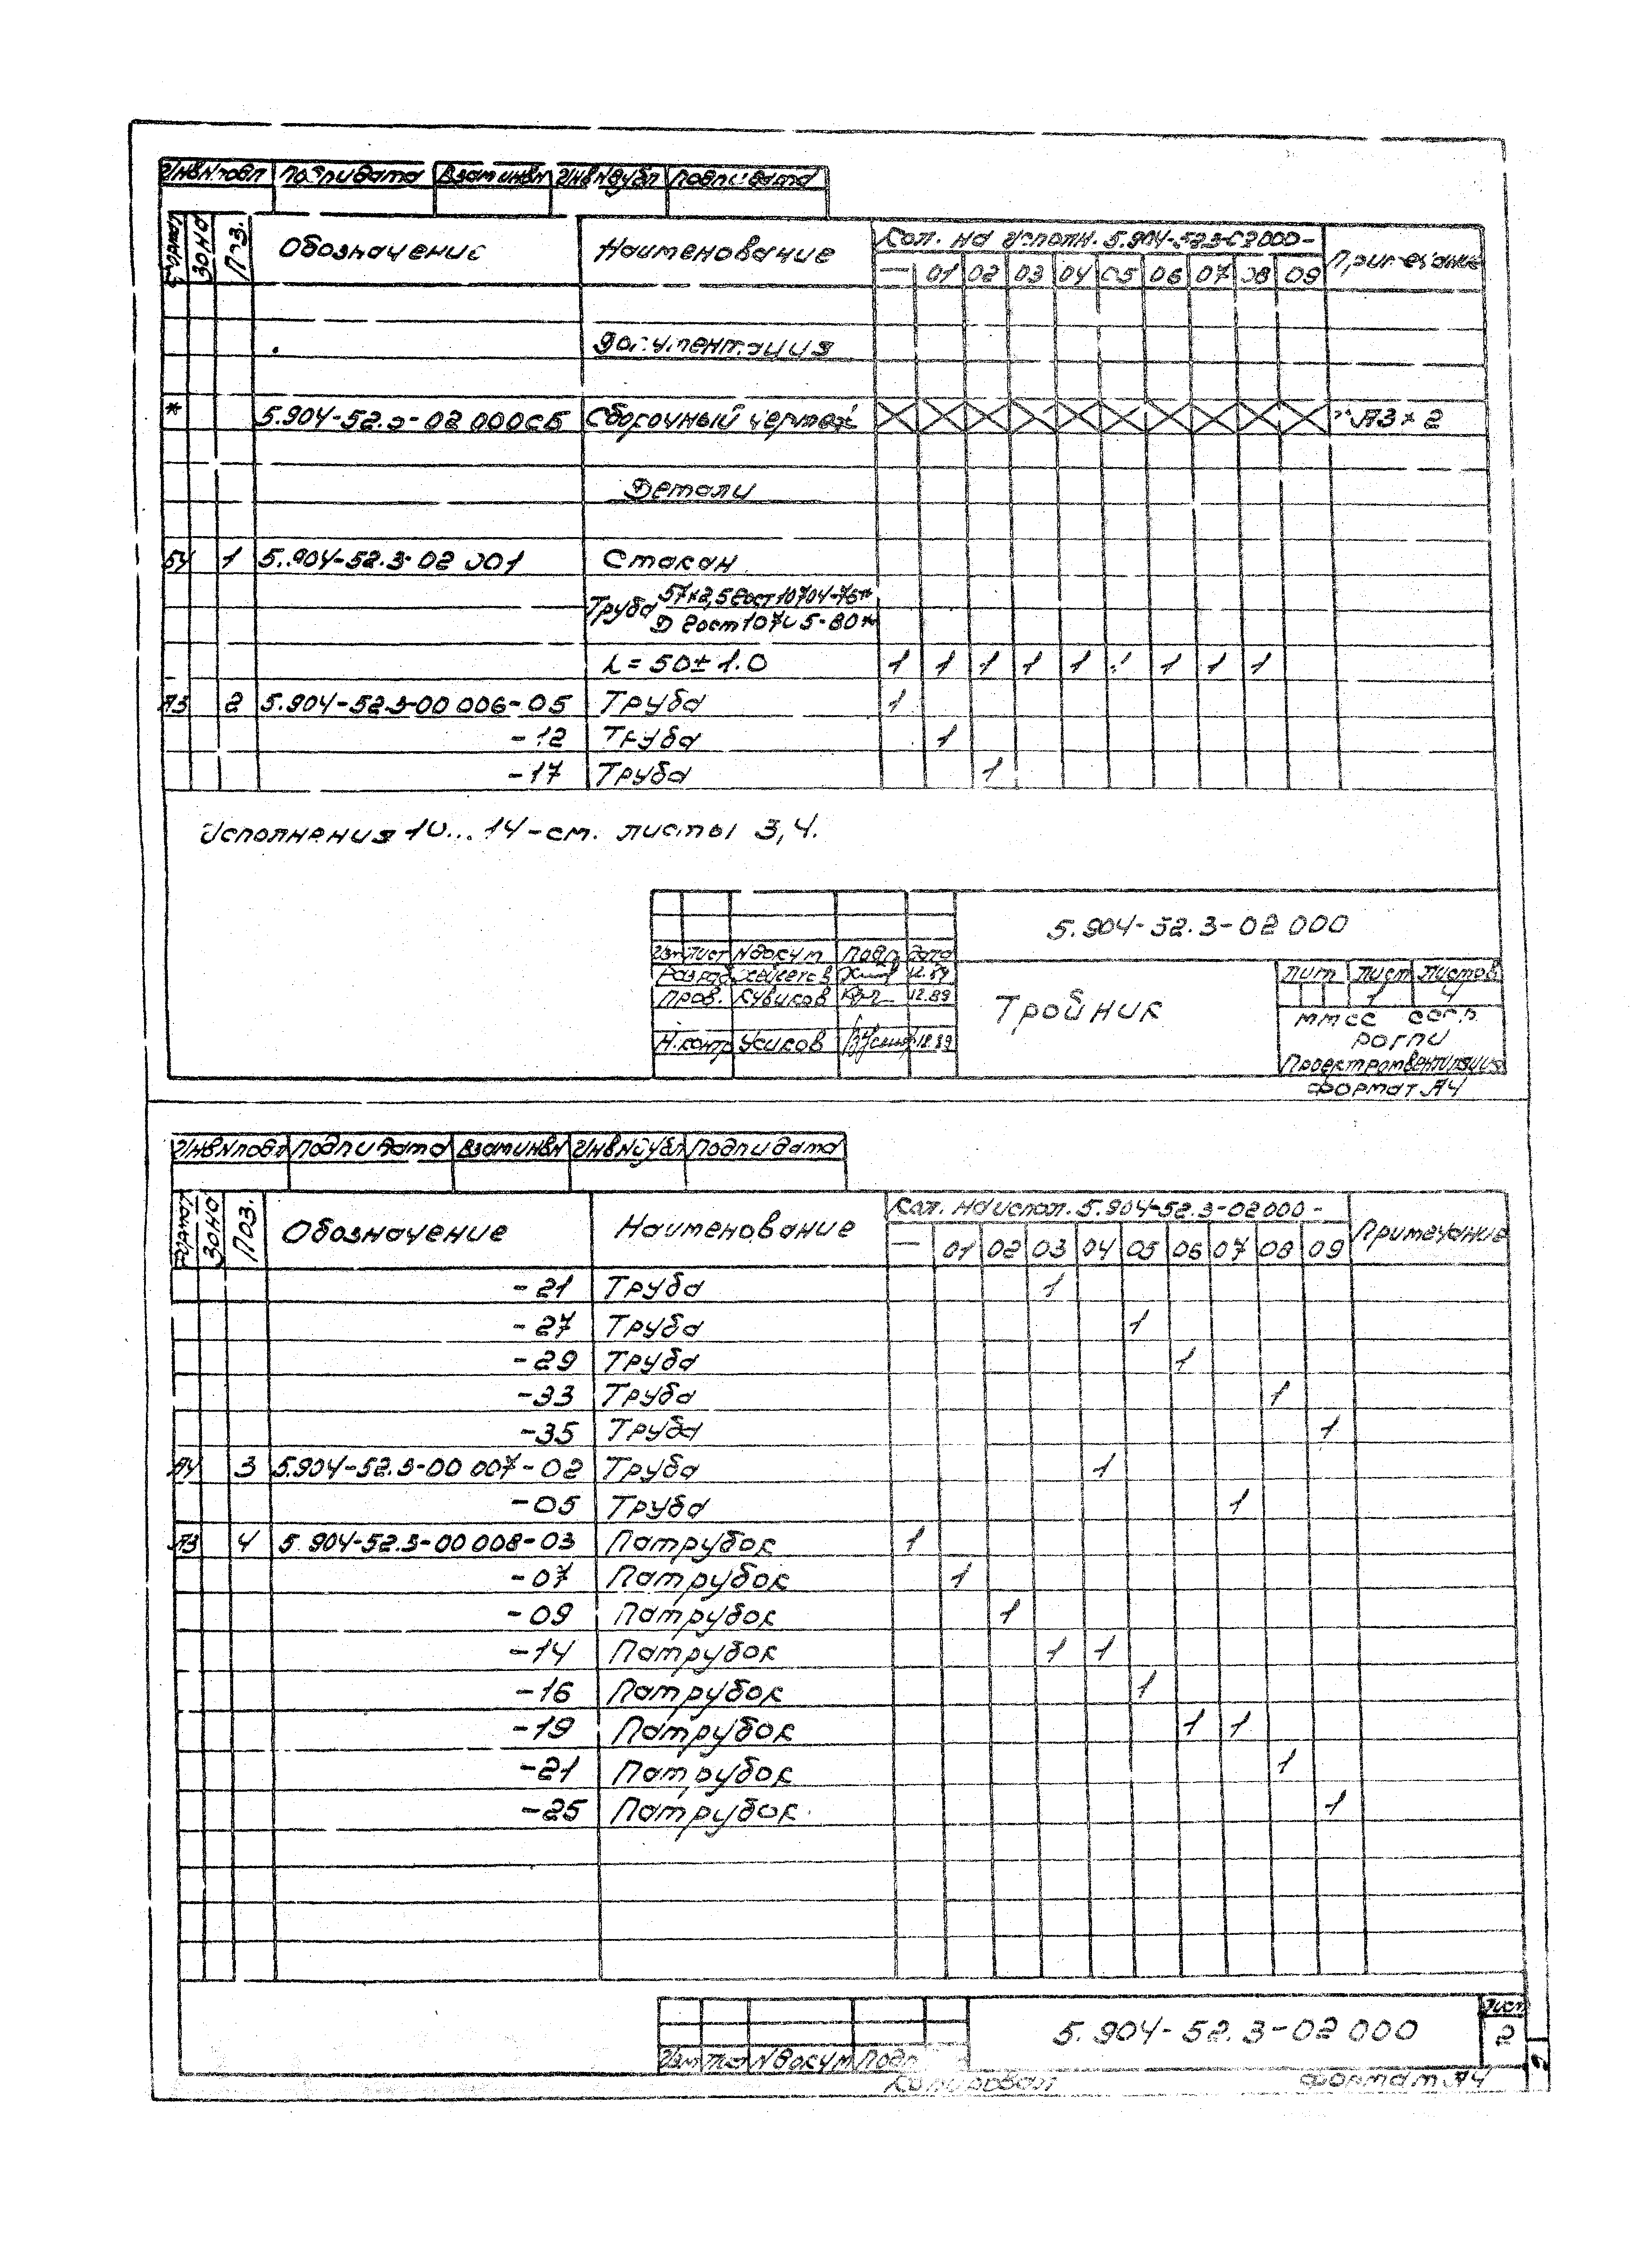 Инв N подл Подп и дата Взам инв N Инв N дубл Подп и дата
Формат Зона Поз. Обозначение Наименование Кол. на исполн. 5.904-52.3-02000- Примечание
— 01 02 03 04 05 06 07 08 09
Документация
* 5.904-52.3-02 000СБ Сборочный чертеж * А3×2
Детали
БЧ 1 5.904-52.3-02 001 Стакан
Труба 57×2,5 Гост 10704-76*
Д Гост 10705-80*
L=50±1.0 1 1 1 1 1 1 1 1 1
А3 2 5.904-52.3-00 006-05 Труба 1
-12 Труба 1
-17 Труба 1
Исполнения 10...14-см. листы 3,4.
5.904-52.3-02 000
Изм Лист N докум Подп Дата
Разраб 12.89
Пров. Кувиков 12.89
Н.контр Усиков 12.89
Тройник
Лит Лист Листов
1 4
ММСС СССР
РОГПИ
Проектпромвентиляция
Формат А4
Инв N подл Подп и дата Взам инв N Инв N дубл Подп и дата
Формат Зона Поз. Обозначение Наименование Кол. на испол. 5.904-52.3-02000- Примечание
— 01 02 03 04 05 06 07 08 09
-21 Труба 1
-27 Труба 1
-29 Труба 1
-33 Труба 1
-35 Труба 1
А4 3 5.904-52.3-00 007-02 Труба 1
-05 Труба 1
А3 4 5.904-52.3-00 008-03 Патрубок 1
-07 Патрубок 1
-09 Патрубок 1
-14 Патрубок 1 1
-16 Патрубок 1
-19 Патрубок 1 1
-21 Патрубок 1
-25 Патрубок 1
5.904-52.3-02 000
Лист
2
Изм Лист N докум Подп
Копировал Формат А4